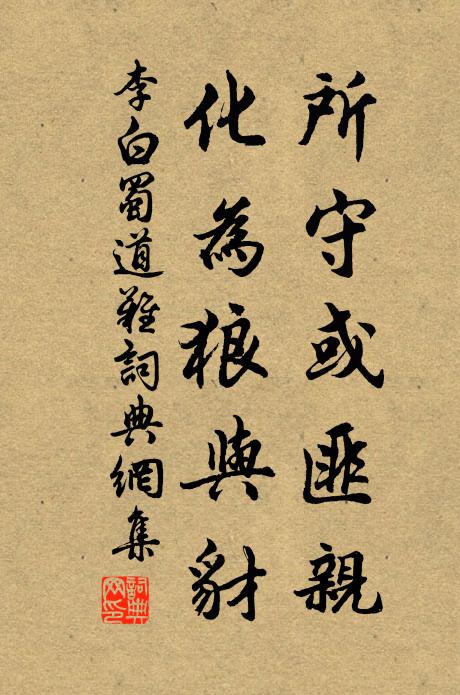 所守或匪親
化為狼與豺
李白蜀道難詞典網集
詞典網印